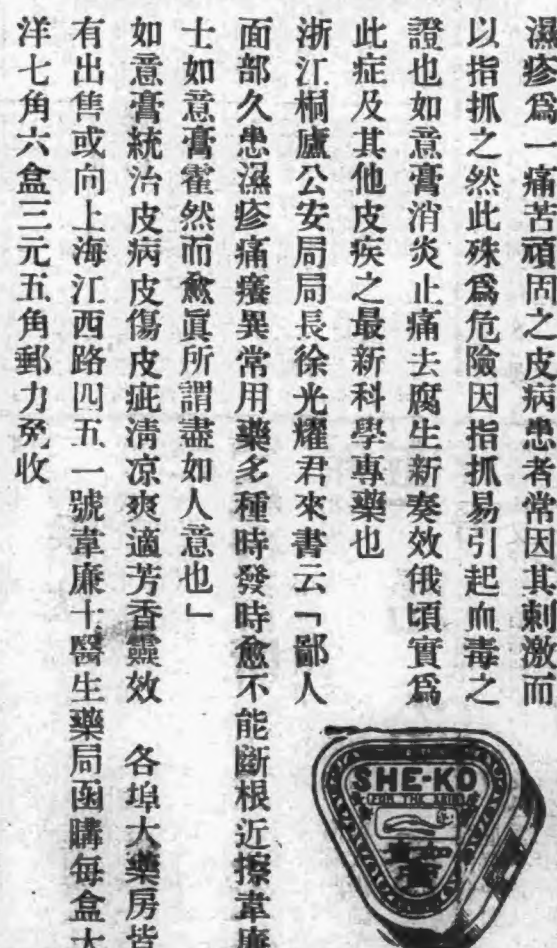 濕疹爲一痛苦頑固之皮病患者常因其刺激而
以指抓之然此殊爲危險因指抓易引起血毒之
證也如意膏消炎止痛去腐生新奏效俄頃實爲
此症及其他皮疾之最新科學專藥也
浙江桐廬公安局局長徐光耀君來書云「鄙人
面部久患濕疹痛癢異常用藥多種時發時愈不能斷根近擦韋廉
士如意膏霍然而愈眞所謂盡如人意也」
如意膏統治皮病皮傷皮疵淸凉爽適芳香靈效　各埠大藥房皆
有出售或向上海江西路四五一號韋廉士醫生藥局函購每盒大
洋七角六盒三元五角郵力免收
SHE-KO
FOR THE SKIN